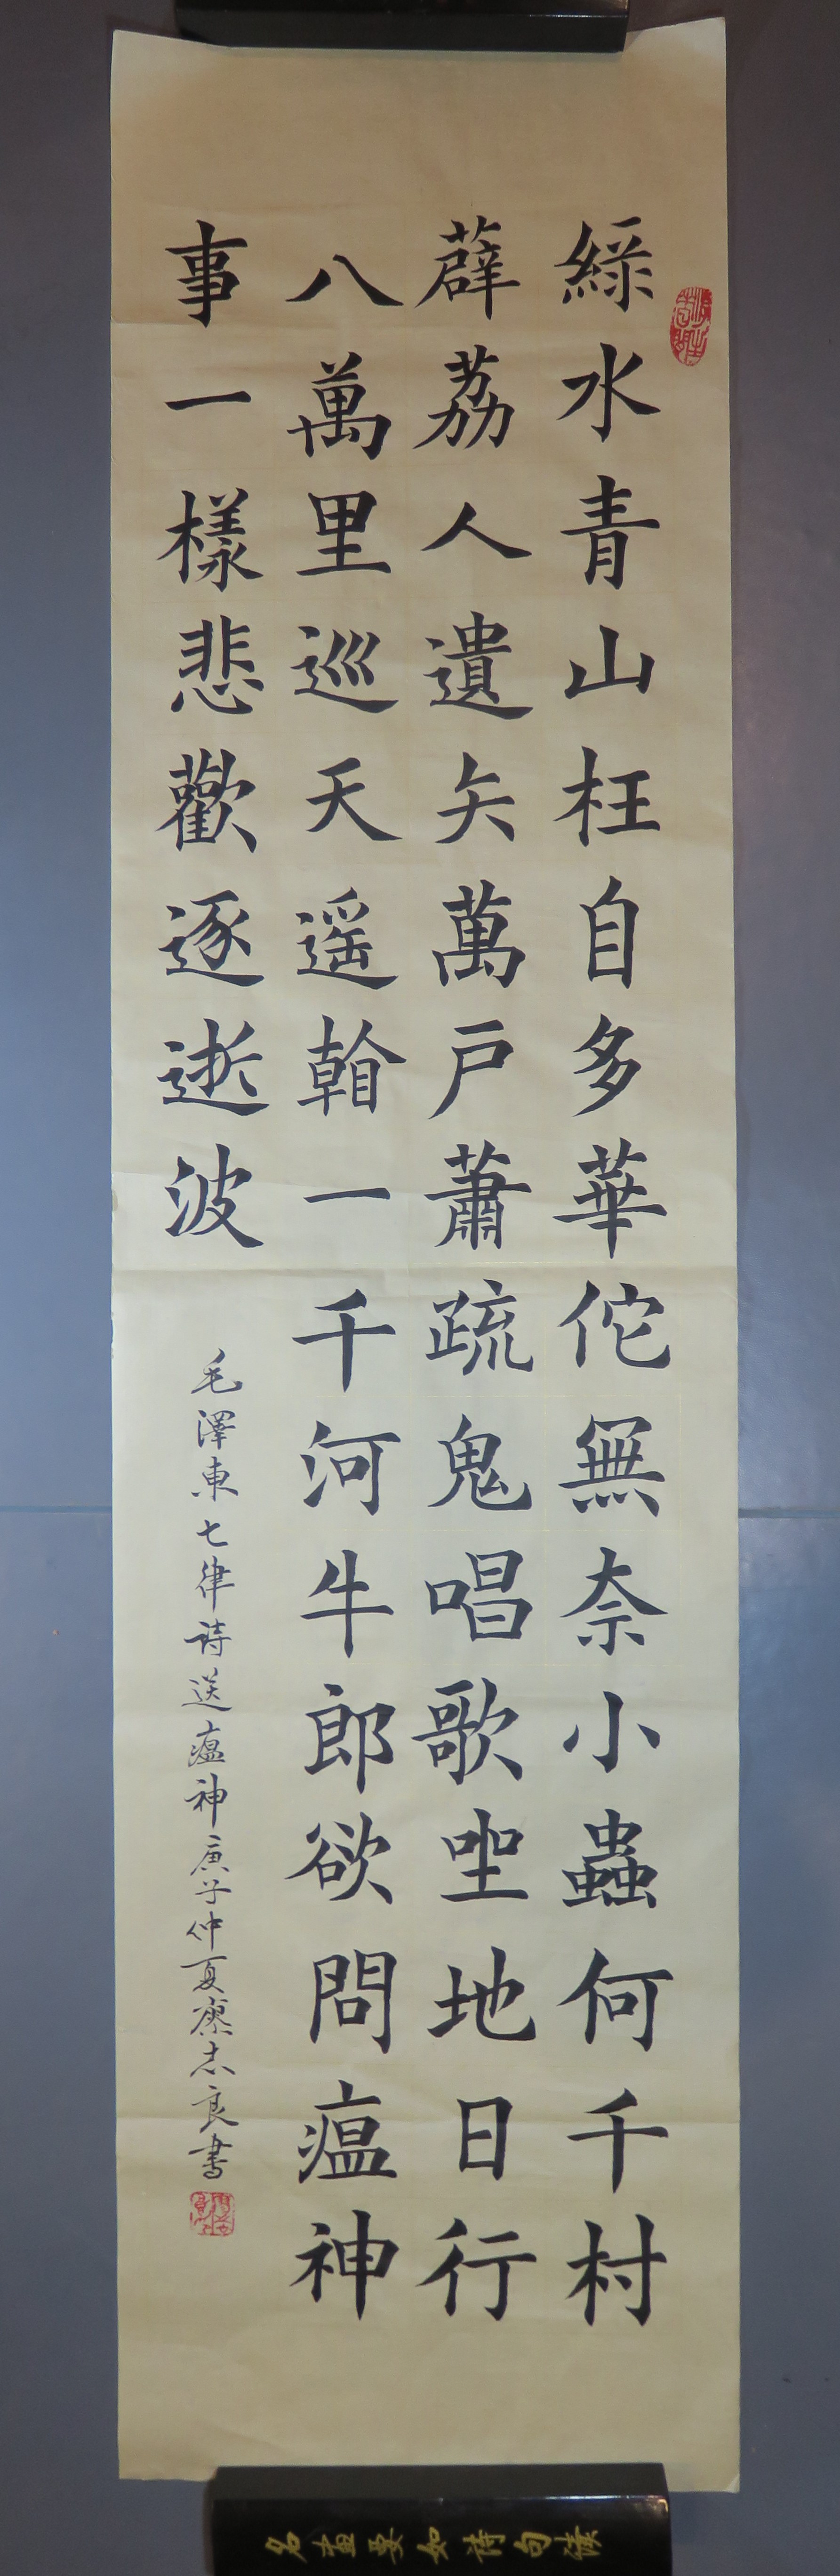 綠水青山枉自多華佗無奈小蟲何千村
薜荔人遺矢萬戶蕭疏鬼唱歌坐地日行
八萬里巡天遥看一千河牛郎欲問瘟神
事一樣悲歡逐逝波
毛澤東七律詩送瘟神庚子仲夏廖志良書
名畫要如詩句讀